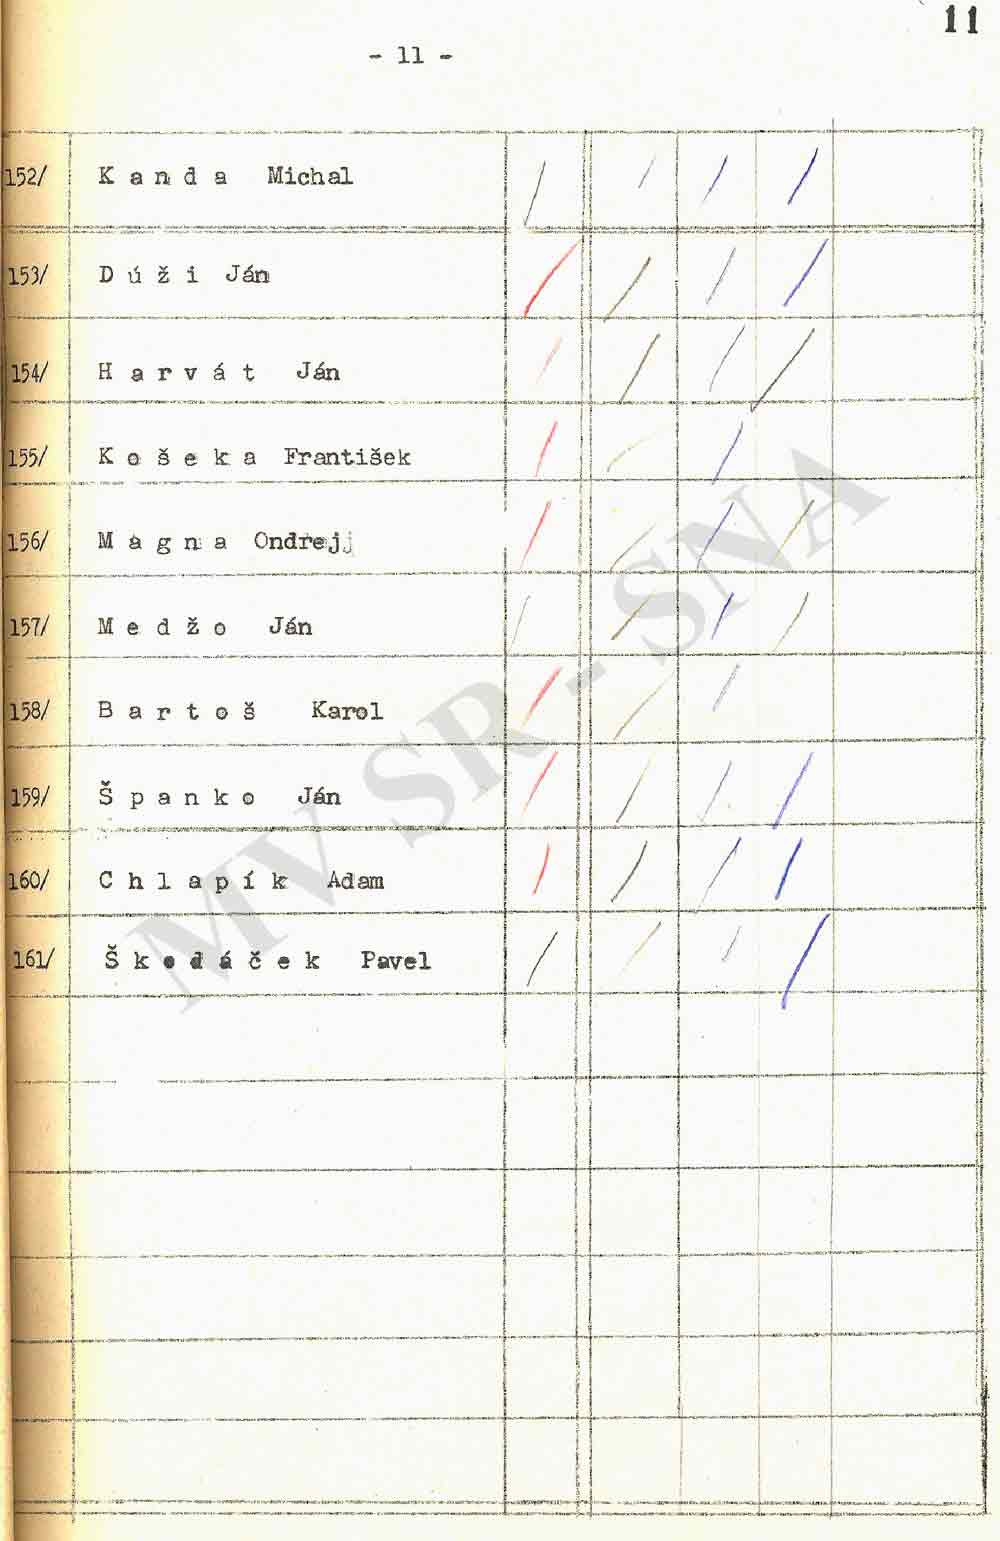 11
- 11 -
152/ Kanda Michal
153/ Dúži Ján
154/ Harvát Ján
155/ Košeka František
156/ Magna Ondrej
157/ Medžo Ján
158/ Bartoš Karol
159/ Španko Ján
160/ Chlapík Adam
161/ Škodáček Pavel
MV SR - SNA